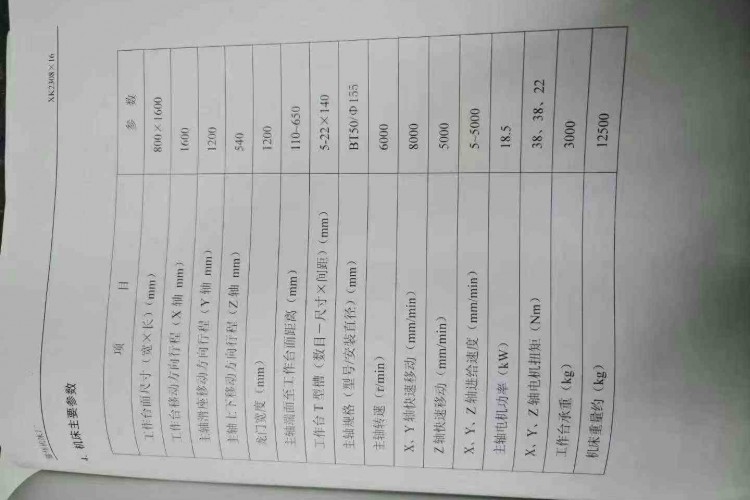 XK2308×16
4. 机床主要参数
项 目 参 数
工作台面尺寸（宽×长）(mm) 800×1600
工作台移动方向行程（X轴 mm） 1600
主轴滑座移动方向行程（Y轴 mm） 1200
主轴上下移动方向行程（Z轴 mm） 540
龙门宽度（mm） 1200
主轴端面至工作台面距离（mm） 110-650
工作台T型槽（数目－尺寸×间距）(mm) 5-22×140
主轴规格（型号/安装直径）(mm) BT50/Φ155
主轴转速（r/min） 6000
X、Y轴快速移动（mm/min） 8000
Z轴快速移动（mm/min） 5000
X、Y、Z轴进给速度（mm/min） 5-5000
主轴电机功率（kW） 18.5
X、Y、Z轴电机扭矩（Nm） 38、38、22
工作台承重（kg） 3000
机床重量约（kg） 12500